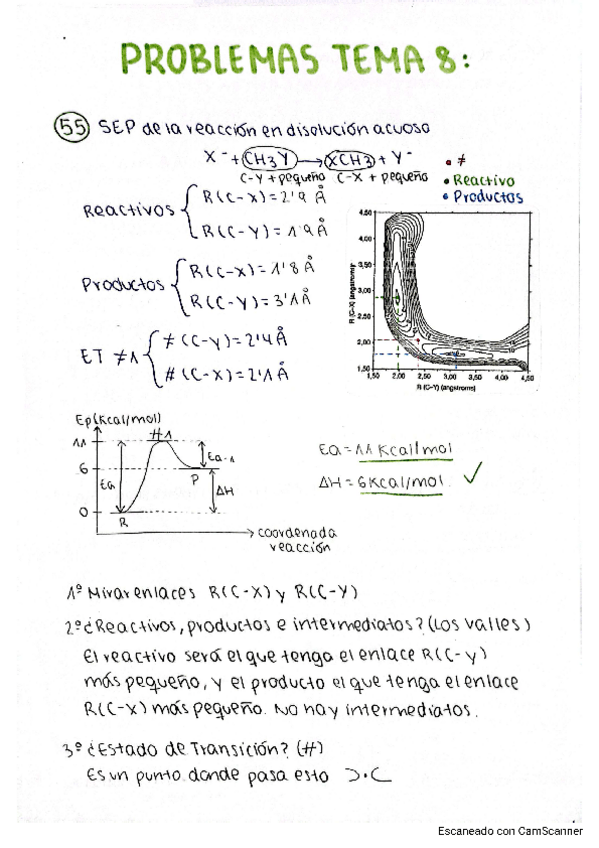 PROBLEMAS TEMA 8:
55 SEP de la reacción en disolución acuosa
X⁻ + CH3Y → XCH3 + Y⁻
C-Y + pequeño C-X + pequeño
• ≠
• Reactivo
• Productos
Reactivos { R(C-X) = 2'9 Å
R(C-Y) = 1'9 Å
Productos { R(C-X) = 1'8 Å
R(C-Y) = 3'1 Å
ET ≠1 { ≠ (C-Y) = 2'4 Å
≠ (C-X) = 2'1 Å
4,50
3,50
3,00
2,50
2,00
1,50
R (C-X) (angstroms)
1,50 2,00 2,50 3,00 3,50 4,00 4,50
R (C-Y) (angstroms)
Ep (Kcal/mol)
≠1
11
6
0
Ea
Ea-1
P
ΔH
R
coordenada
reacción
Ea = 11 Kcal/mol
ΔH = 6 Kcal/mol ✓
1º Mirar enlaces R(C-X) y R(C-Y)
2º ¿Reactivos, productos e intermediatos? (Los valles)
El reactivo será el que tenga el enlace R(C-Y)
más pequeño, y el producto el que tenga el enlace
R(C-X) más pequeño. No hay intermediatos.
3º ¿Estado de Transición? (≠)
Es un punto donde pasa esto Ɔ·C
Escaneado con CamScanner